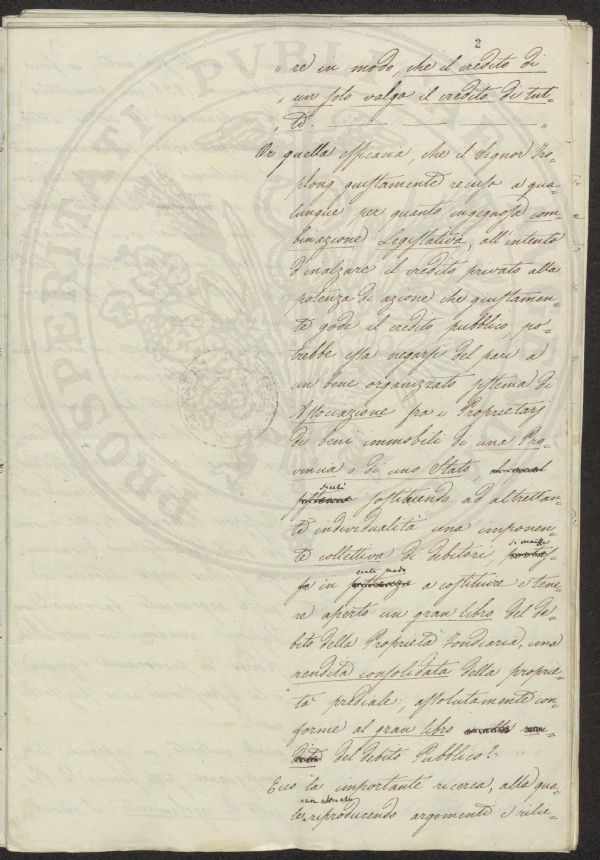 2
„ re in modo, che il credito di
„ un solo valga il credito di tut-
„ ti. — — — „
Or quella efficacia, che il Signor Tro-
plong giustamente recusa a qua-
lunque per quanto ingegnosa com-
binazione Legislativa, all'intento
d'inalzare il credito privato alla
potenza di azione che giustamen-
te gode il credito pubblico, po-
trebbe essa negarsi del pari a
un bene organizzato sistema di
Associazione fra i Proprietarj
di beni immobili di una Pro-
vincia o di uno Stato
sicchè
sostituendo ad altrettan-
te individualità una imponen-
te collettiva di debitori
si venisse
in
certo modo
a costituire e tene-
re aperto un gran libro del de-
bito della Proprietà Fondiaria, una
rendita consolidata della proprie-
tà prediale, assolutamente con-
forme al gran libro
del debito Pubblico?
Ecco la importante ricerca, alla qua-
le riproducendo argomenti e rilie-
PROSPERITATI PVBLICAE